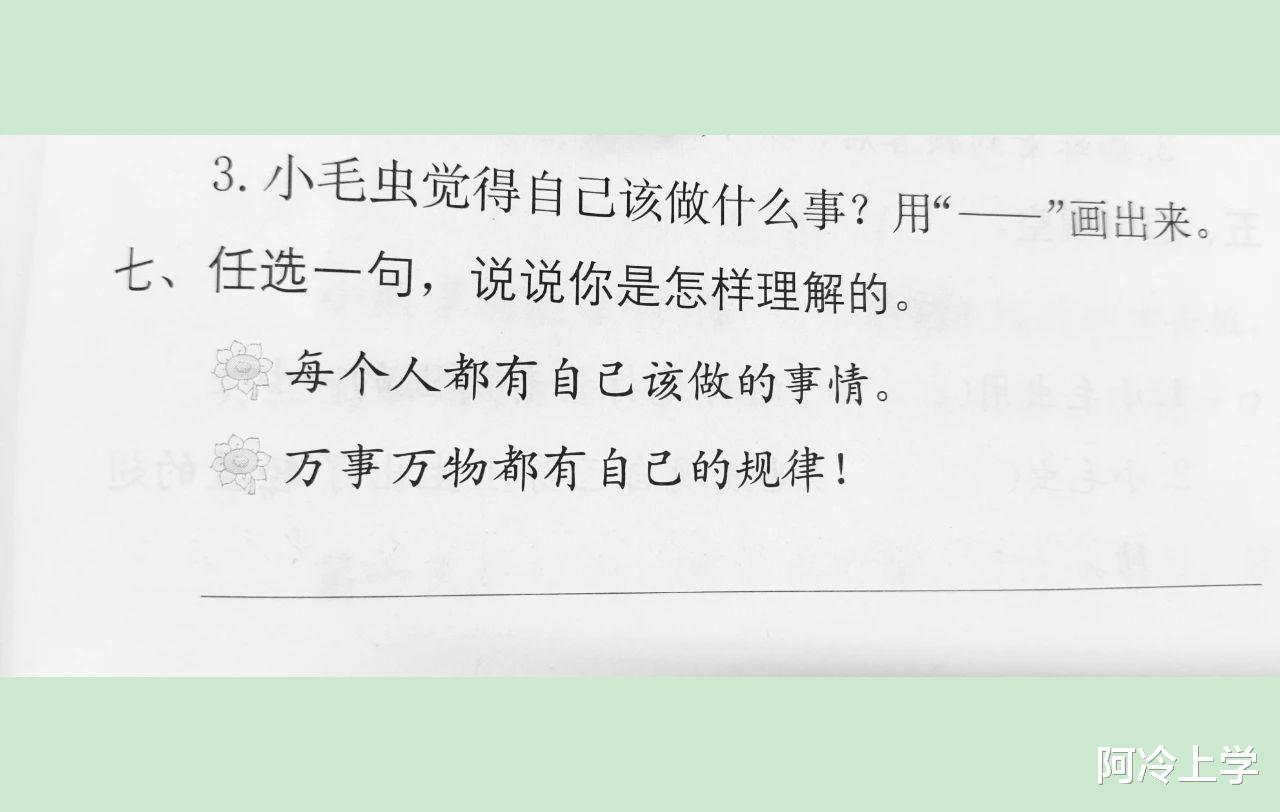 3. 小毛虫觉得自己该做什么事？用“——”画出来。
七、任选一句，说说你是怎样理解的。
每个人都有自己该做的事情。
万事万物都有自己的规律！
阿冷上学